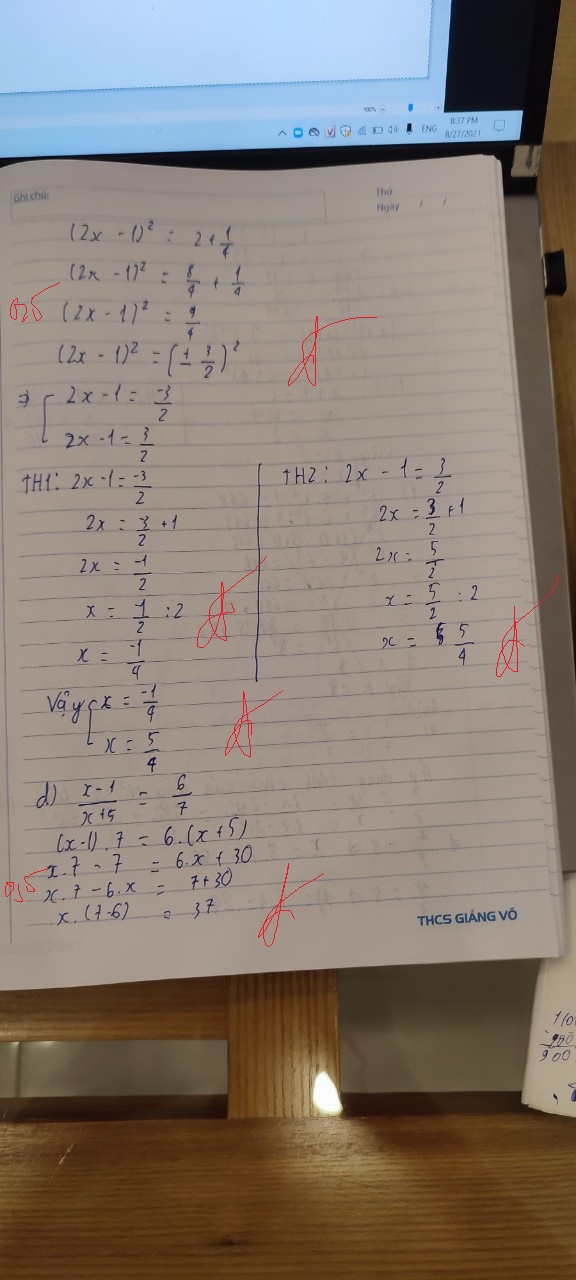 100%
8:37 PM
ENG
8/27/2021
Ghi chú:
Thứ
Ngày / /
(2x - 1)² = 2 + 1/4
(2x - 1)² = 8/4 + 1/4
0,5
(2x - 1)² = 9/4
(2x - 1)² = (± 3/2)²
⇒ [ 2x - 1 = -3/2
2x - 1 = 3/2
TH1: 2x - 1 = -3/2
2x = 3/2 + 1
2x = -1/2
x = -1/2 : 2
x = -1/4
TH2: 2x - 1 = 3/2
2x = 3/2 + 1
2x = 5/2
x = 5/2 : 2
x = 5/4
Vậy [ x = -1/4
x = 5/4
d) (x-1)/(x+5) = 6/7
(x-1) . 7 = 6.(x+5)
x.7 - 7 = 6.x + 30
0,5
x.7 - 6.x = 7+30
x.(7-6) = 37
THCS GIẢNG VÕ
900